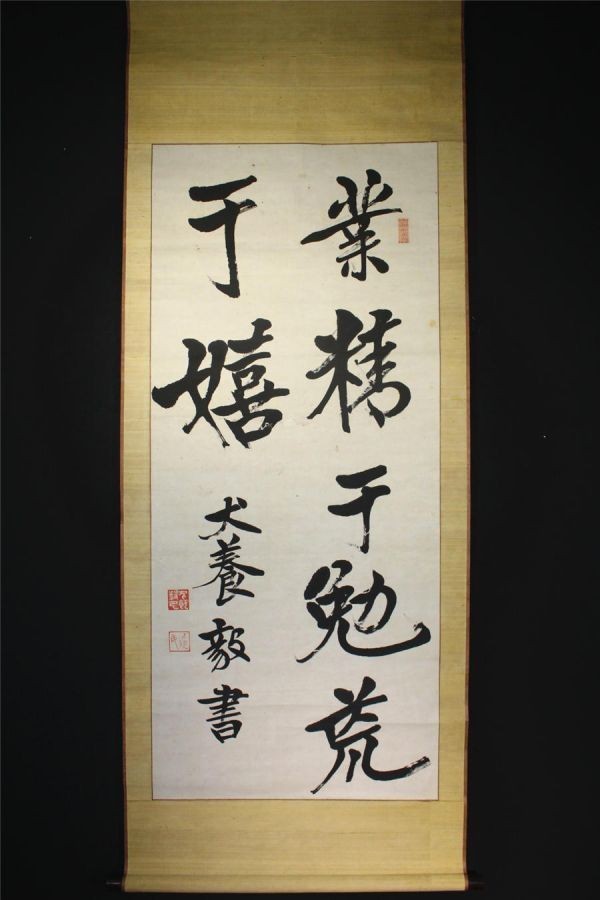 業精于勉荒
于嬉
犬養毅書